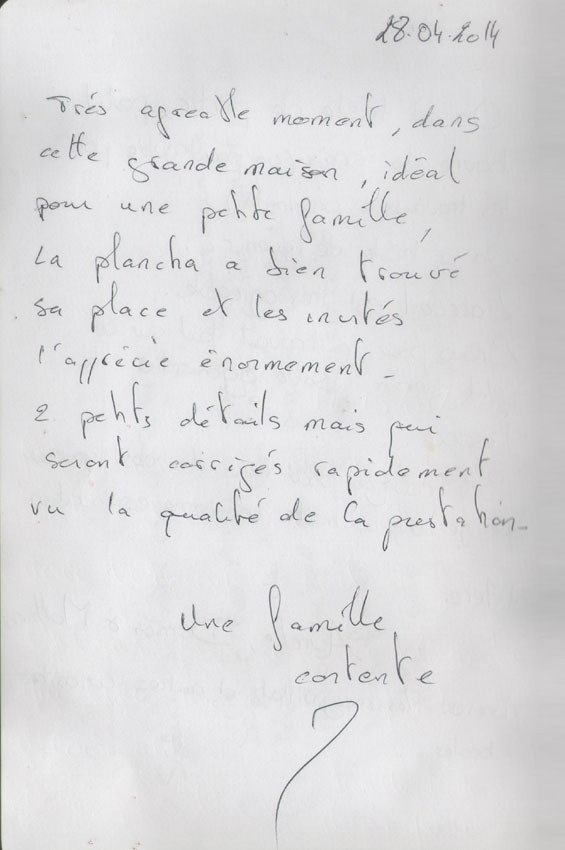 28.04.2014
Très agreable moment, dans
cette grande maison, idéal
pour une petite famille,
La plancha a bien trouvé
sa place et les invités
l'apprécie énormement _
2 petits détails mais qui
seront corrigés rapidement
vu la qualité de la prestation_
Une famille
contente